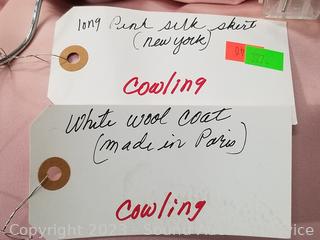 long Pink silk skirt
(new york)
Cowling
White wool coat
(made in Paris)
Cowling